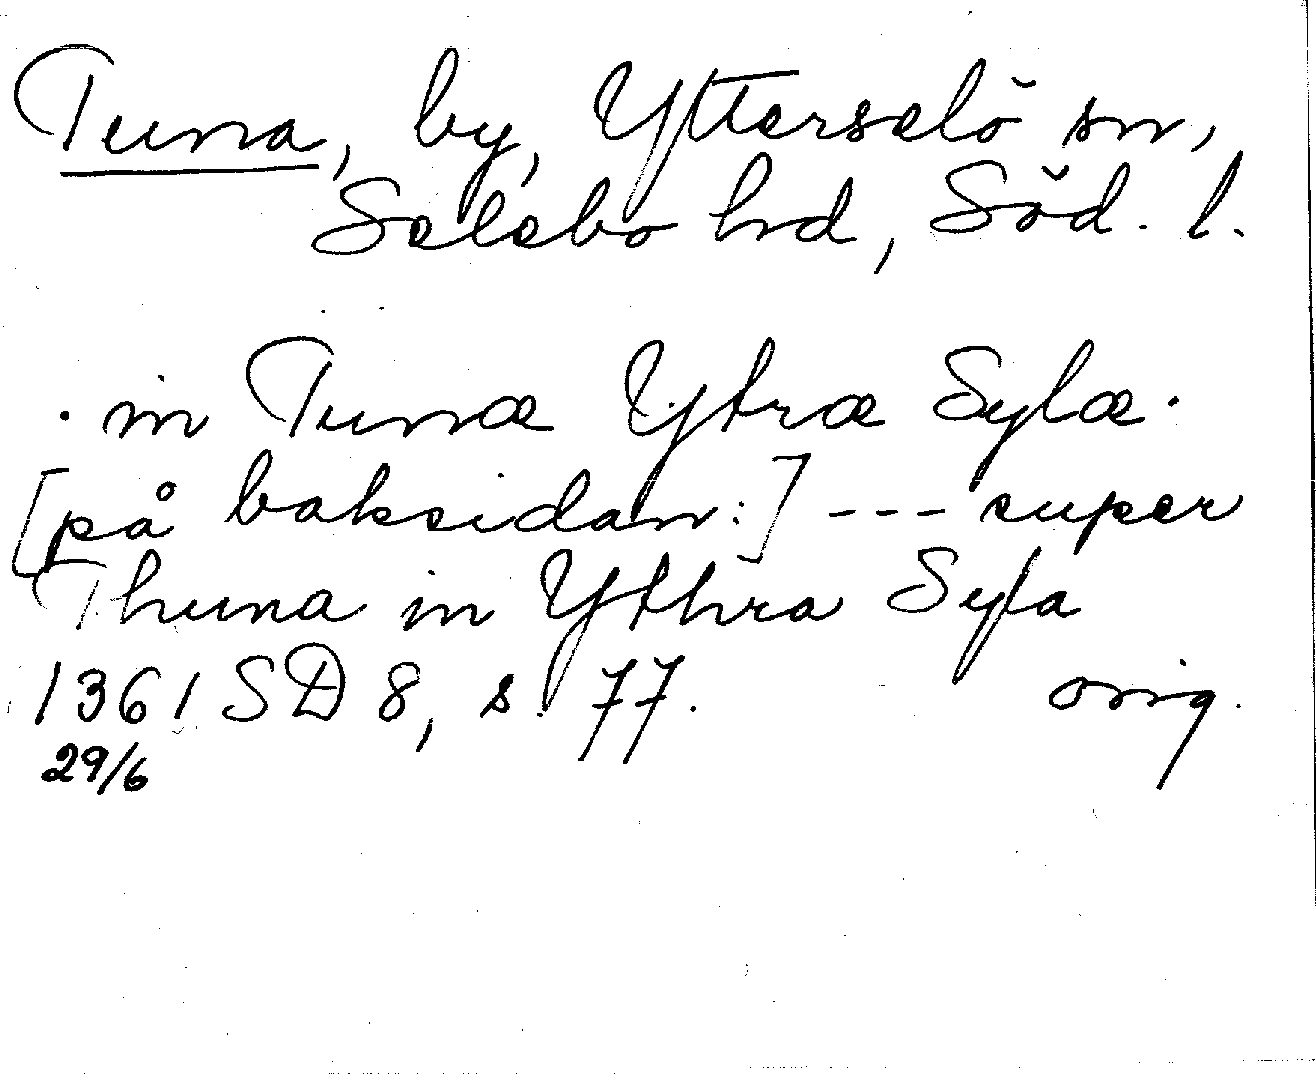 Tuna, by, Ytterselö sn,
Selebo hd, Söd. l.
. in Tunæ Ytræ Sylæ.
[på baksidan:] --- super
Thuna in Ythra Syla
1361 SD 8, s. 77. orig.
29/6